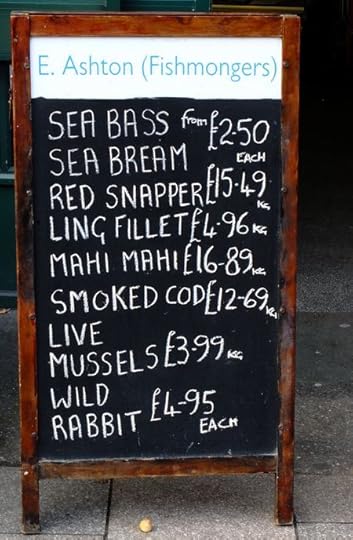 E. Ashton (Fishmongers)
SEA BASS from £2·50
SEA BREAM EACH
RED SNAPPER £15·49 KG
LING FILLET £4·96 KG
MAHI MAHI £16-89 KG
SMOKED COD £12-69 KG
LIVE
MUSSELS £3·99 KG
WILD
RABBIT £4-95 EACH